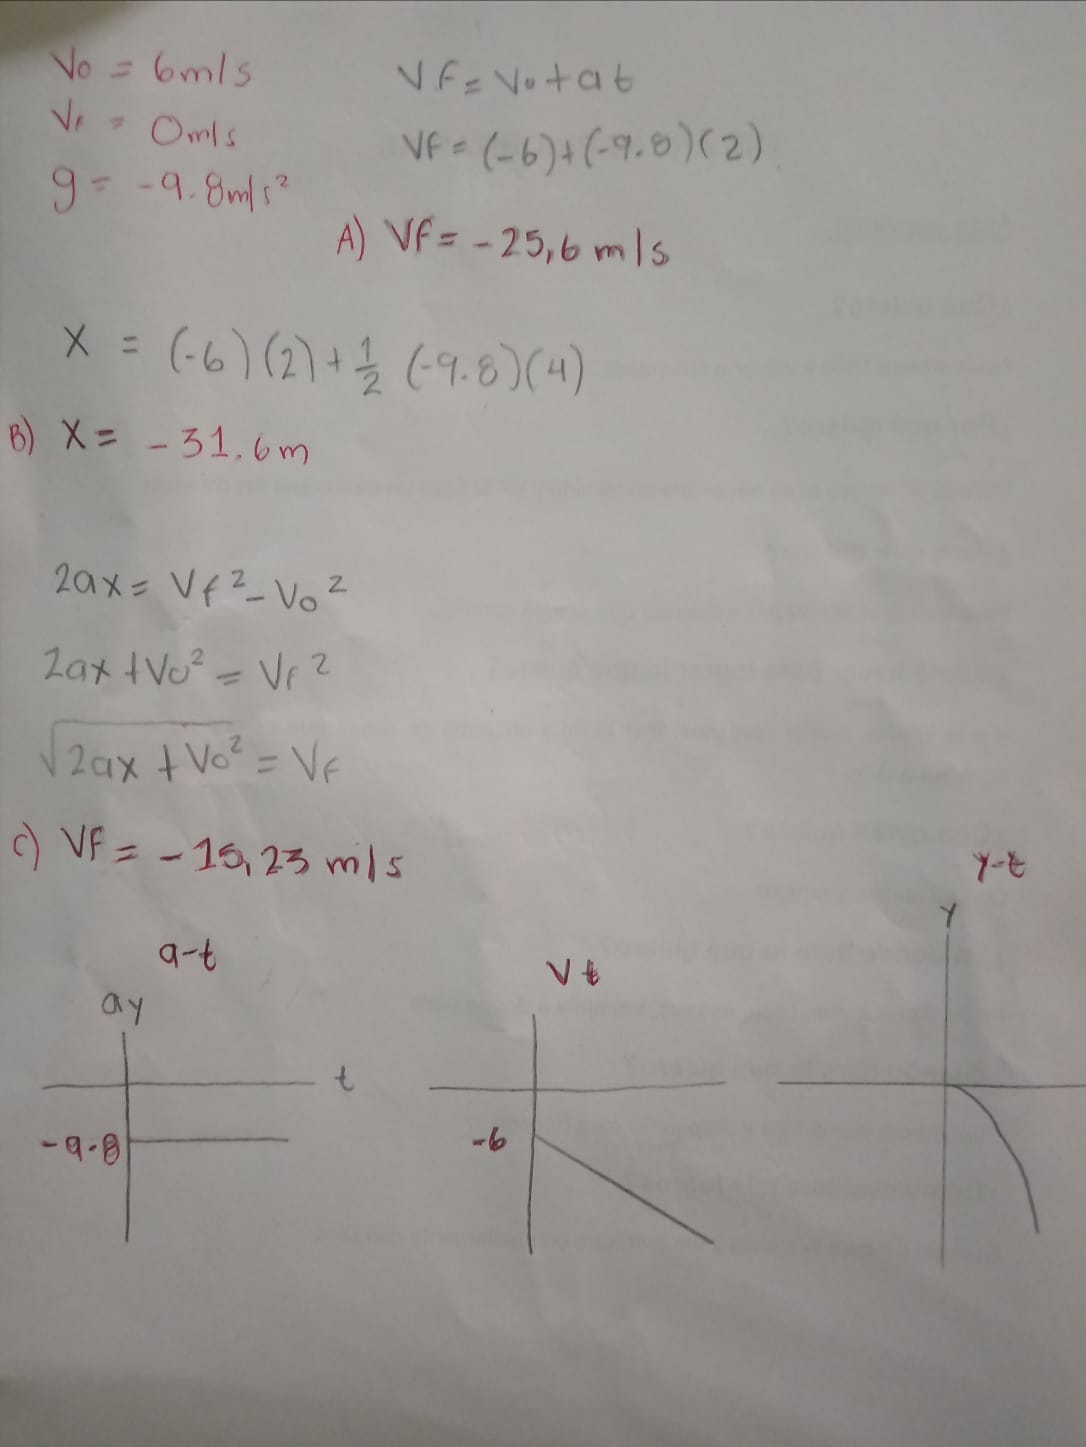 Vo = 6m/s
Vf = 0m/s
g = -9.8m/s²
Vf = Vo + at
Vf = (-6)+(-9.8)(2)
A) Vf = -25,6 m/s
X = (-6)(2)+½ (-9.8)(4)
B) X = -31.6m
2ax = Vf² - Vo²
2ax + Vo² = Vf²
√2ax + Vo² = Vf
C) Vf = -15,23 m/s
a-t
ay
t
-9.8
V t
-6
y-t
Y